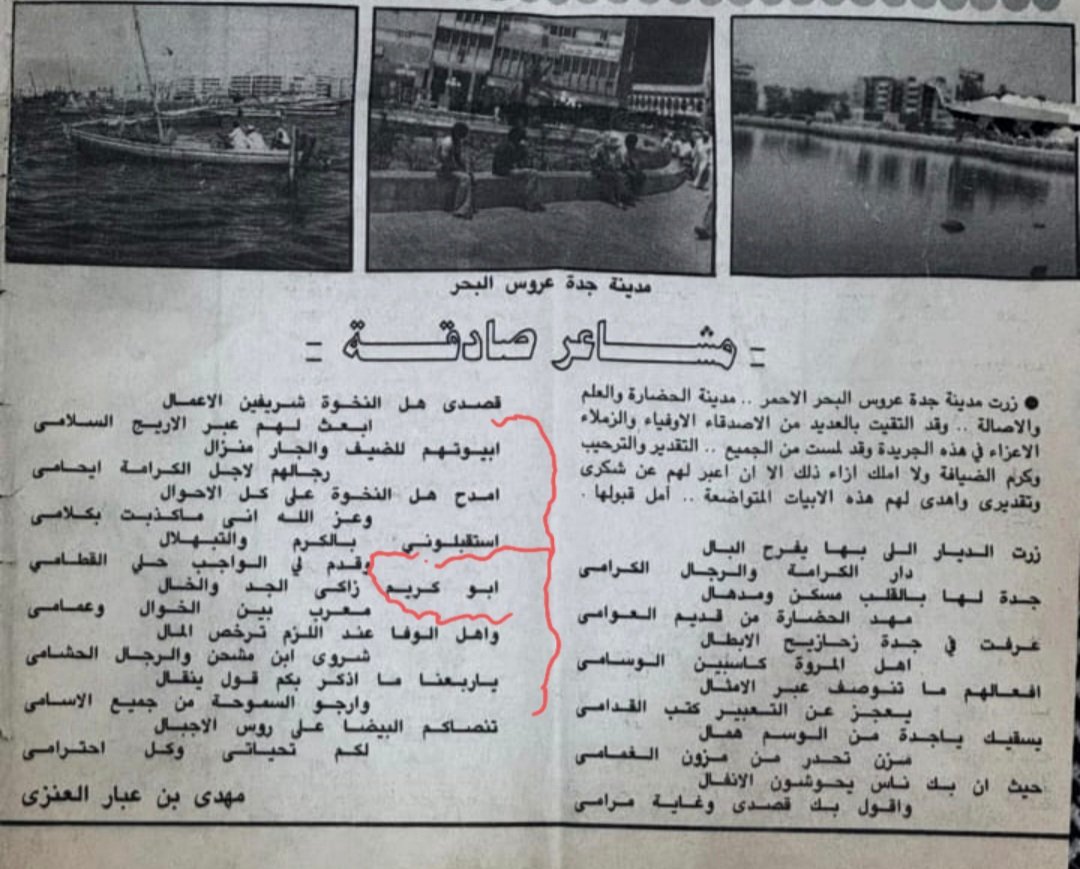 مدينة جدة عروس البحر
= مشاعر صادقة =
● زرت مدينة جدة عروس البحر الاحمر .. مدينة الحضارة والعلم
والاصالة .. وقد التقيت بالعديد من الاصدقاء الاوفياء والزملاء
الاعزاء في هذه الجريدة وقد لمست من الجميع .. التقدير والترحيب
وكرم الضيافة ولا املك ازاء ذلك الا ان اعبر لهم عن شكرى
وتقديرى واهدى لهم هذه الابيات المتواضعة .. آمل قبولها .
زرت الديار اللى بها يفرح البال
دار الكرامة والرجال الكرامى
جدة لها بالقلب مسكن ومدهال
مهد الحضارة من قديم العوامى
عرفت في جدة زحازيح الابطال
اهل المروة كاسبين الوسامى
افعالهم ما تنوصف عبر الامثال
يعجز عن التعبير كتب القدامى
يسقيك ياجدة من الوسم همال
مزن تحدر من مزون الغمامى
حيث ان بك ناس يحوشون الانفال
واقول بك قصدى وغاية مرامى
قصدى هل النخوة شريفين الاعمال
ابعث لهم عبر الاريج السلامى
ابيوتهم للضيف والجار منزال
رجالهم لاجل الكرامة ايحامى
امدح هل النخوة على كل الاحوال
وعز الله انى ماكذبت بكلامى
استقبلوني بالكرم والتبهلال
وقدم لي الواجب حلي القطامي
ابو كريم زاكى الجد والخال
معرب بين الخوال وعمامى
واهل الوفا عند اللزم ترخص المال
شروى ابن مشحن والرجال الحشامى
ياربعنا ما اذكر بكم قول ينقال
وارجو السموحة من جميع الاسامى
تنصاكم البيضا على روس الاجبال
لكم تحياتى وكل احترامى
مهدى بن عبار العنزى